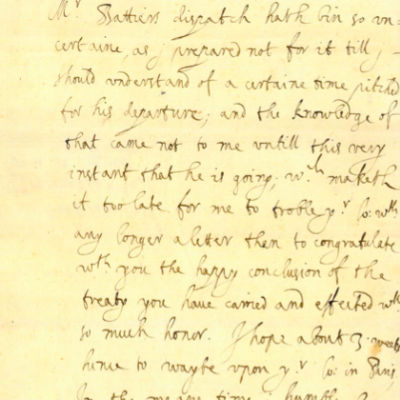 Mr Battiers dispatch hath bin so un-
certaine, as j prepared not for it till j
should understand of a certaine time pitched
for his departure; and the knowledge of
that came not to me untill this very
instant that he is going; wch maketh
it too late for me to troble yr lo: wth
any longer a letter then to congratulate
wth you the happy conclusion of the
treaty you have caried and effected wth
so much honor. J hope about 3 weeks
hence to wayte upon yr lo: in Paris,
In the meane time j humbly